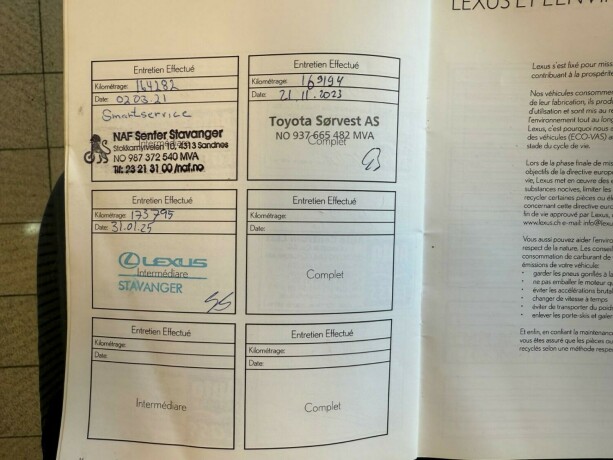 LEXUS ET L'ENVI
Entretien Effectué
Kilométrage: 164282
Date: 02.03.21
Smartservice
NAF Senter Stavanger
Stokkamyrveien 10, 4313 Sandnes
NO 987 372 540 MVA
Tlf: 23 21 31 00 /naf.no
Entretien Effectué
Kilométrage: 169194
Date: 21.11.2023
Toyota Sørvest AS
NO 937 665 482 MVA
Complet
Entretien Effectué
Kilométrage: 173795
Date: 31.01.25
LEXUS
Intermédiare
STAVANGER
Entretien Effectué
Kilométrage:
Date:
Complet
Entretien Effectué
Kilométrage:
Date:
Intermédiare
Entretien Effectué
Kilométrage:
Date:
Complet
Lexus s'est fixé pour miss
contribuant à la prospérité
Nos véhicules consommen
de leur fabrication, ils prod
d'utilisation et sont mis au re
l'environnement tout au long
Lexus, c'est pourquoi nous o
des véhicules (ECO-VAS) a
stade du cycle de vie.
Lors de la phase finale de mis
objectifs de la directive europé
vie, Lexus met en œuvre des e
substances nocives, limiter les
recycler certaines pièces ou él
concernant cette directive euro
fin de vie approuvé par Lexus,
www.lexus.ch e-mail: info@lexu
Vous aussi pouvez aider l'enviro
respect de la nature. Les conseil
consommation de carburant de
émissions de votre véhicule:
• garder les pneus gonflés à la
• ne pas emballer le moteur q
• éviter les accélérations brutal
• changer de vitesse à temps
• éviter de transporter du poid
• enlever les porte-skis et galer
Et enfin, en confiant la maintenanc
vous êtes assuré que les pièces ou
recyclés selon une méthode respe